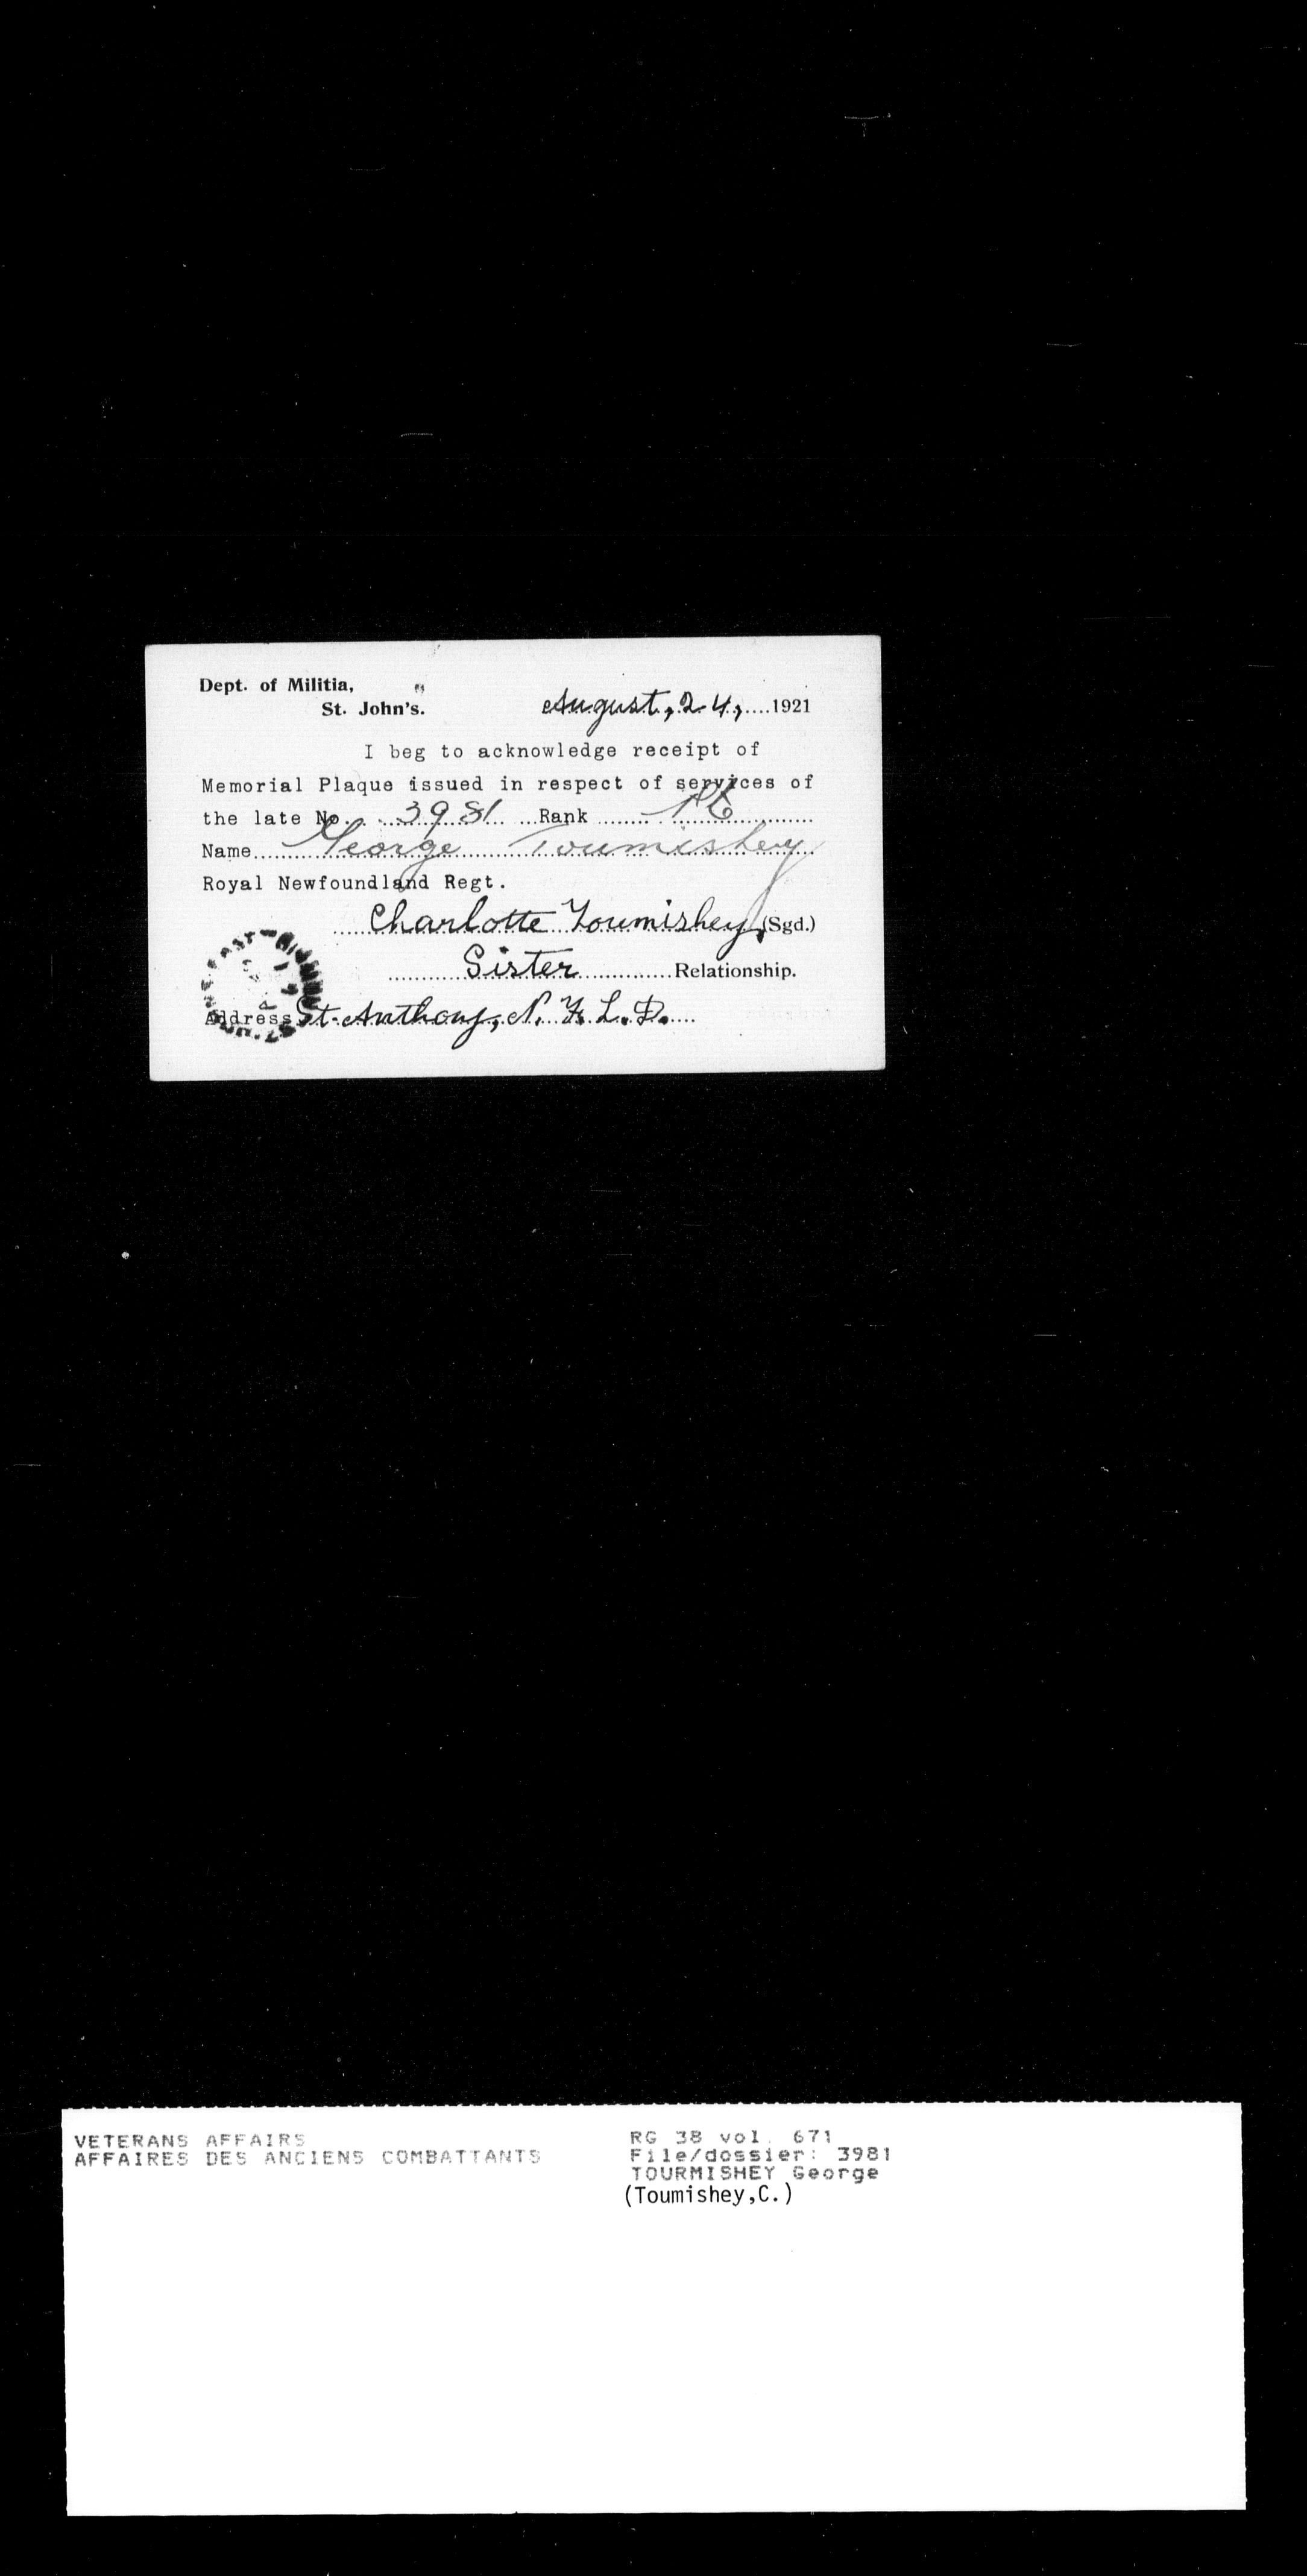 Dept. of Militia,
St. John's.
August, 24, ....1921
I beg to acknowledge receipt of
Memorial Plaque issued in respect of services of
the late No. 3981 Rank Pte
Name George Toumishey
Royal Newfoundland Regt.
Charlotte Toumishey, (Sgd.)
Sister Relationship.
Address St. Anthony, N. F. L. D.
VETERANS AFFAIRS
AFFAIRES DES ANCIENS COMBATTANTS
RG 38 vol. 671
File/dossier: 3981
TOURMISHEY George
(Toumishey,C.)